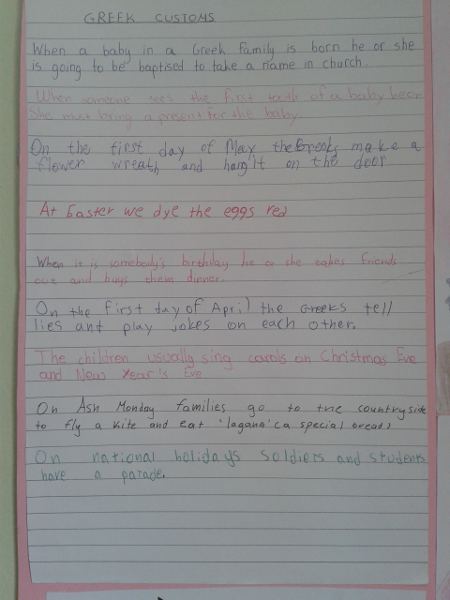 GREEK CUSTOMS
When a baby in a Greek family is born he or she
is going to be baptised to take a name in church.
When someone sees the first tooth of a baby
She must bring a present for the baby.
On the first day of May the Greeks make a
flower wreath and hang it on the door
At Easter we dye the eggs red
When it is somebody's birthday he or she takes friends
out and buys them dinner.
On the first day of April the Greeks tell
lies and play jokes on each other.
The children usually sing carols on Christmas Eve
and New Year's Eve
On Ash Monday families go to the countryside
to fly a kite and eat 'lagana' (a special bread)
On national holidays soldiers and students
have a parade.